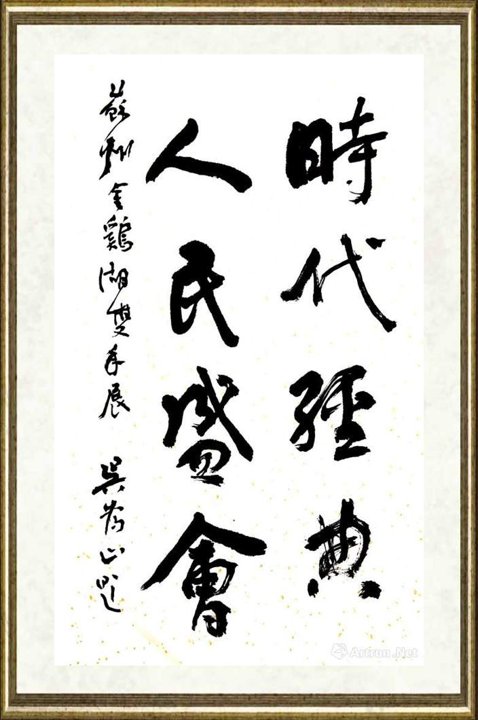 時代經典
人民盛會
蘇州金鷄湖雙年展 吳為山題
Artron.Net